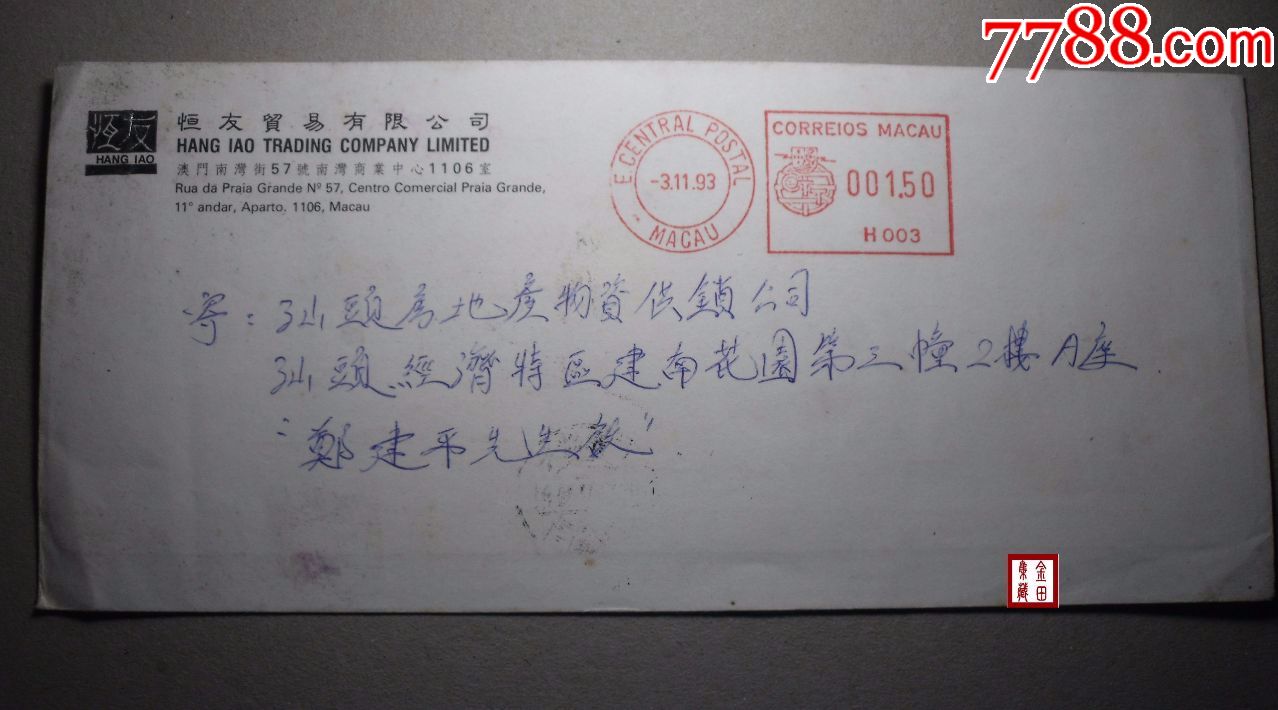 7788.com
恒友
HANG IAO
恒友貿易有限公司
HANG IAO TRADING COMPANY LIMITED
澳門南灣街57號南灣商業中心1106室
Rua da Praia Grande Nº 57, Centro Comercial Praia Grande,
11° andar, Aparto. 1106, Macau
E.CENTRAL POSTAL
-3.11.93
- MACAU
CORREIOS MACAU
001.50
H 003
寄：汕頭房地產物資供銷公司
汕頭經濟特區建南花園第三幢2樓A座
"鄭建平先生啟"
金田
集藏